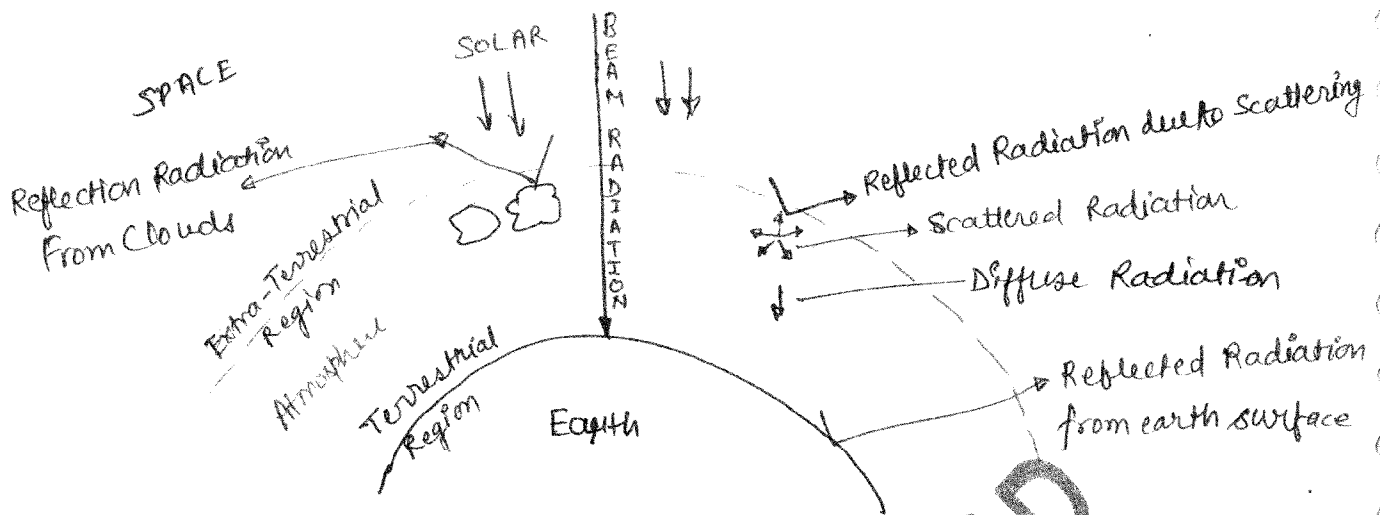 SPACE
SOLAR
BEAM RADIATION
Reflection Radiation
From Clouds
Extra-Terrestrial
Region
Atmosphere
Terrestrial
Region
Earth
Reflected Radiation due to Scattering
Scattered Radiation
Diffuse Radiation
Reflected Radiation
from earth surface